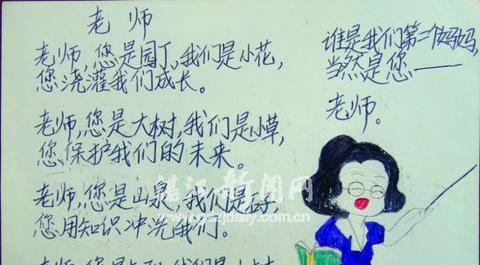 老师
老师,您是园丁,我们是小花,
您浇灌我们成长。
老师,您是大树,我们是小草,
您保护我们的未来。
老师,您是山泉,我们是
您用知识冲洗我们。
老师
谁是我们第二个妈妈,
当然是您——
老师。
湛江新闻网